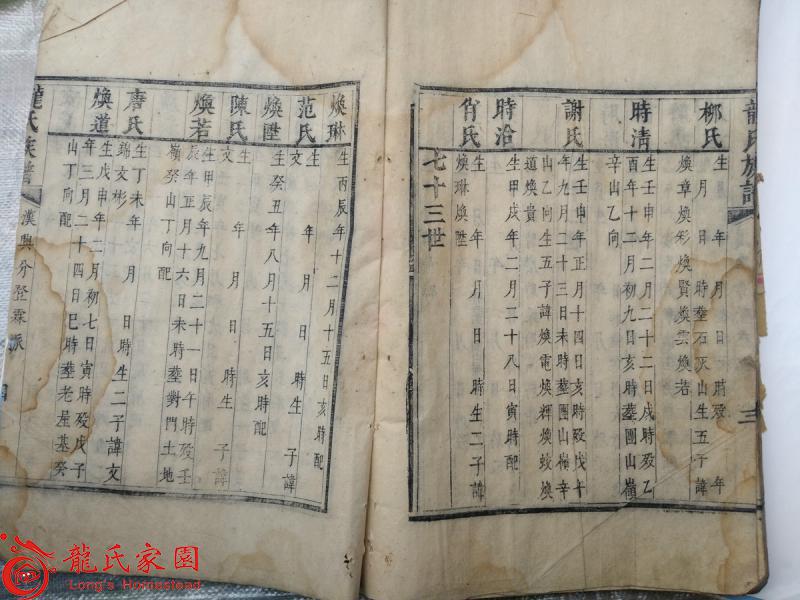 龍氏族譜
三
柳氏
生 月 日 年 月 日 時歿 年
月 日 時塟石灰山生五子諱
煥章煥彩煥賢煥雲煥若
時清
生壬申年二月二十二日戌時歿乙
酉年十二月初九日亥時塟團山嶺
辛山乙向
謝氏
生壬申年正月十四日亥時歿戊午
年九月二十三日未時塟團山嶺辛
山乙向生五子諱煥電煥輝煥蛟煥
道煥貴
時治
生甲戌年二月二十八日寅時配
肖氏
生 年 月 日 時生二子諱
煥琳煥陞
七十三世
煥琳
生丙辰年十二月十五日亥時配
范氏
生 年 月 日 時生 子諱
文
煥陞
生癸丑年八月十五日亥時配
陳氏
生 年 月 日 時生 子諱
文
煥若
生甲辰年九月二十一日午時歿壬
辰年正月十六日未時塟對門土地
嶺癸山丁向配
唐氏
生丁未年 月 日 時生二子諱文
錦文彬
煥道
生戊申年二月初七日寅時歿戊子
年三月二十四日巳時塟老屋基癸
山丁向配
龍氏族譜
漢興分登霖派
四
龍氏家園
Long's Homestead